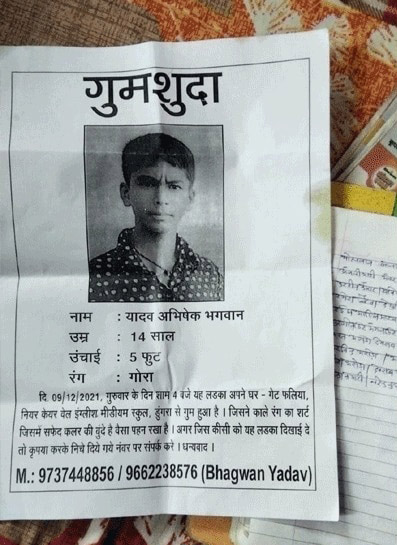 गुमशुदा
नाम : यादव अभिषेक भगवान
उम्र : 14 साल
उंचाई : 5 फुट
रंग : गोरा
दि. 09/12/2021, गुरुवार के दिन शाम 4 बजे यह लडका अपने घर - गेट फलिया,
नियर केयर वेल इंग्लीश मीडीयम स्कुल, डुंगरा से गुम हुआ है । जिसने काले रंग का शर्ट
जिसमें सफेद कलर की वुंदे है वैसा पहन रखा है । अगर जिस कीसी को यह लडका दिखाई दे
तो कृपया करके निचे दिये गये नंबर पर संपर्क करे । धन्यवाद ।
M.: 9737448856 / 9662238576 (Bhagwan Yadav)